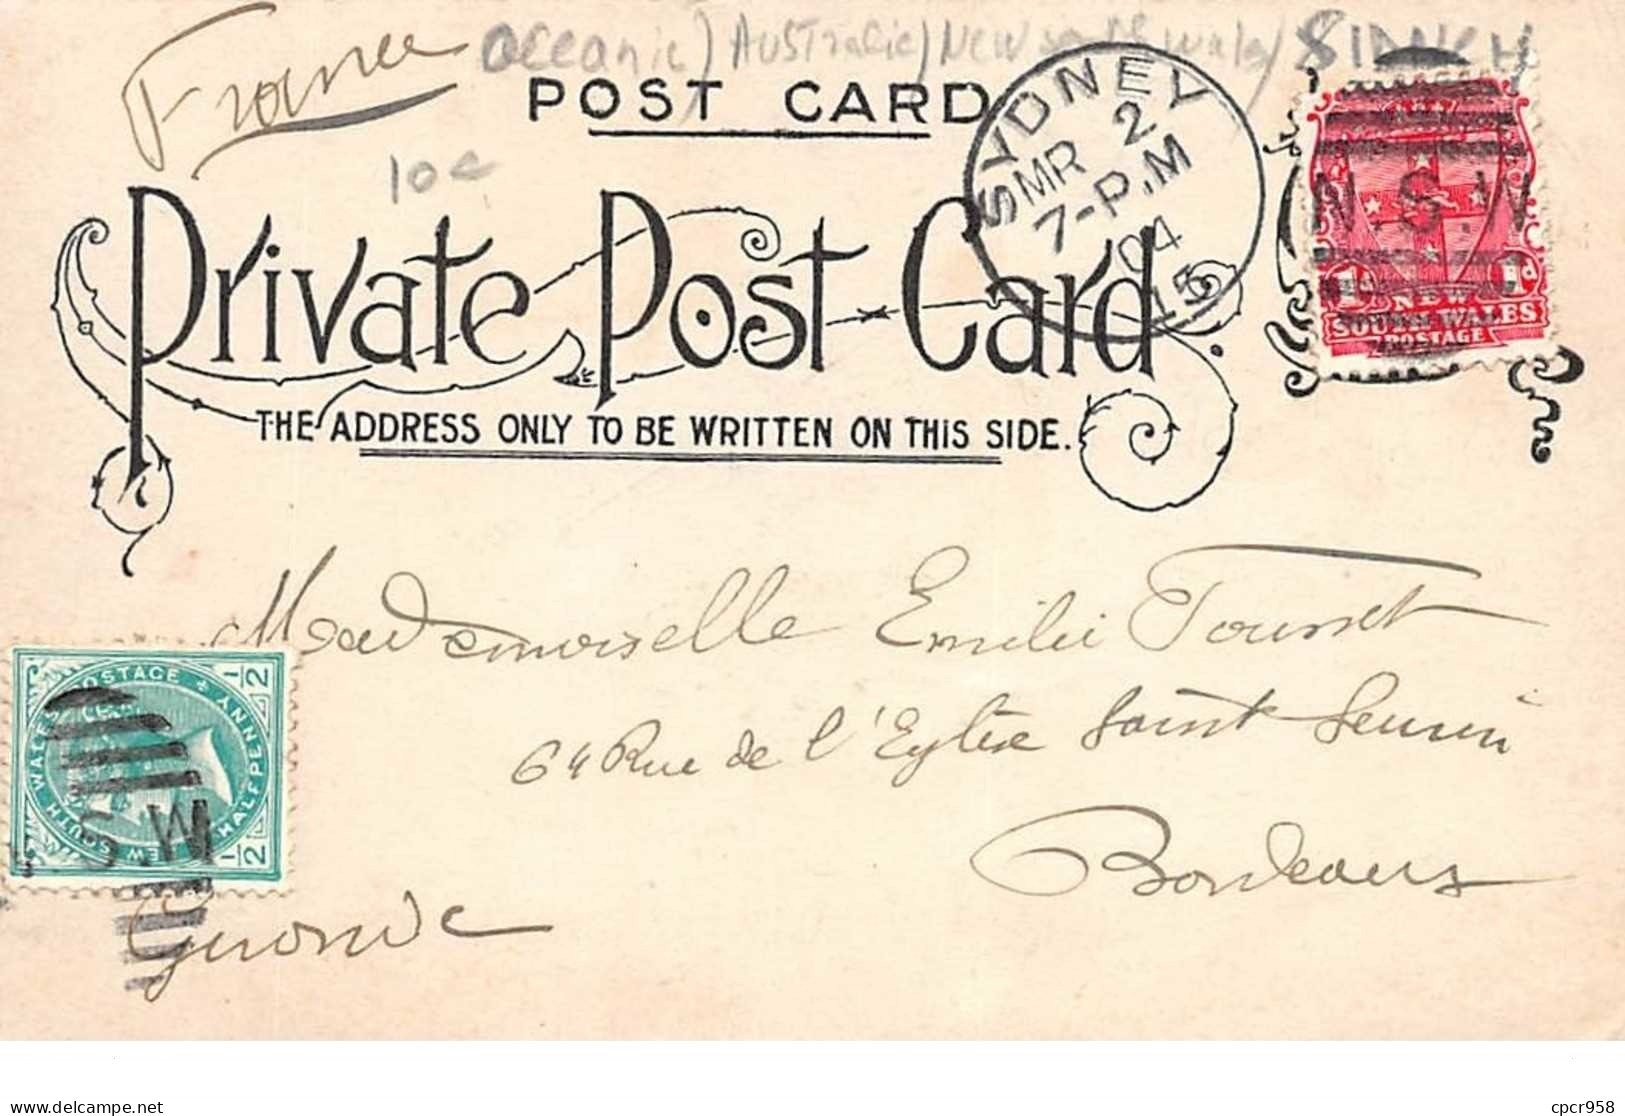 France
Oceanie / Australie / New south wales / SIDNEY
POST CARD
10€
SYDNEY
MR 2
7-P.M
04
15
N.S.W
1d 1d
NEW
SOUTH WALES
POSTAGE
Private Post Card
THE ADDRESS ONLY TO BE WRITTEN ON THIS SIDE.
Mademoiselle Emilie
64 Rue de l'Eglise Saint Seurin
Bordeaux
Gironde
NEW SOUTH WALES POSTAGE
HALFPENNY
1/2 1/2
N.S.W
delcampe.net
cpcr958